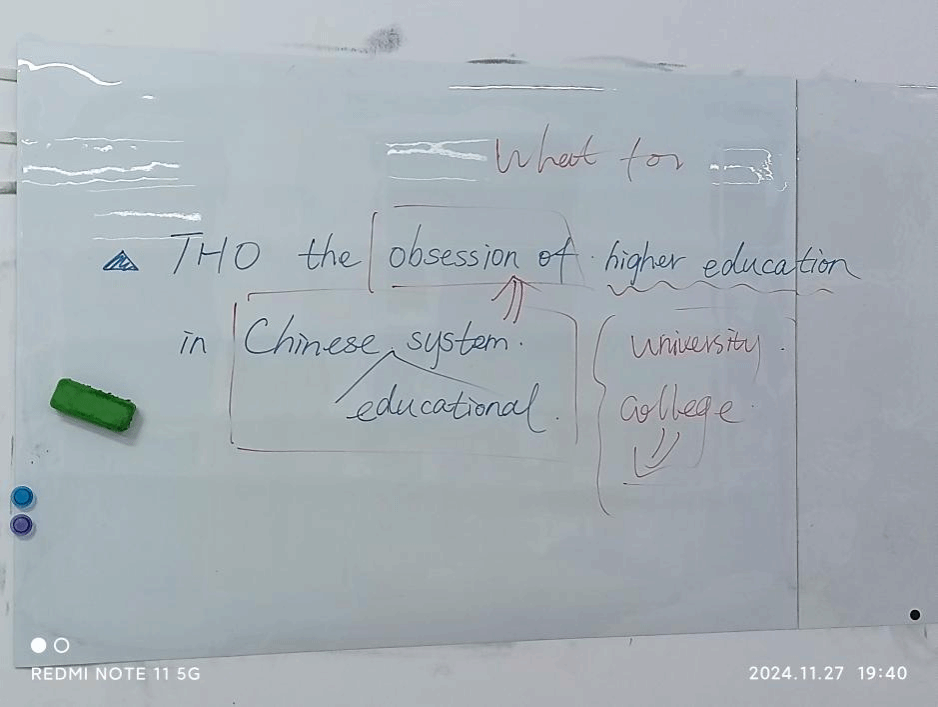 What for
THO the obsession of higher education
in Chinese system.
educational.
university.
college.
REDMI NOTE 11 5G
2024.11.27 19:40